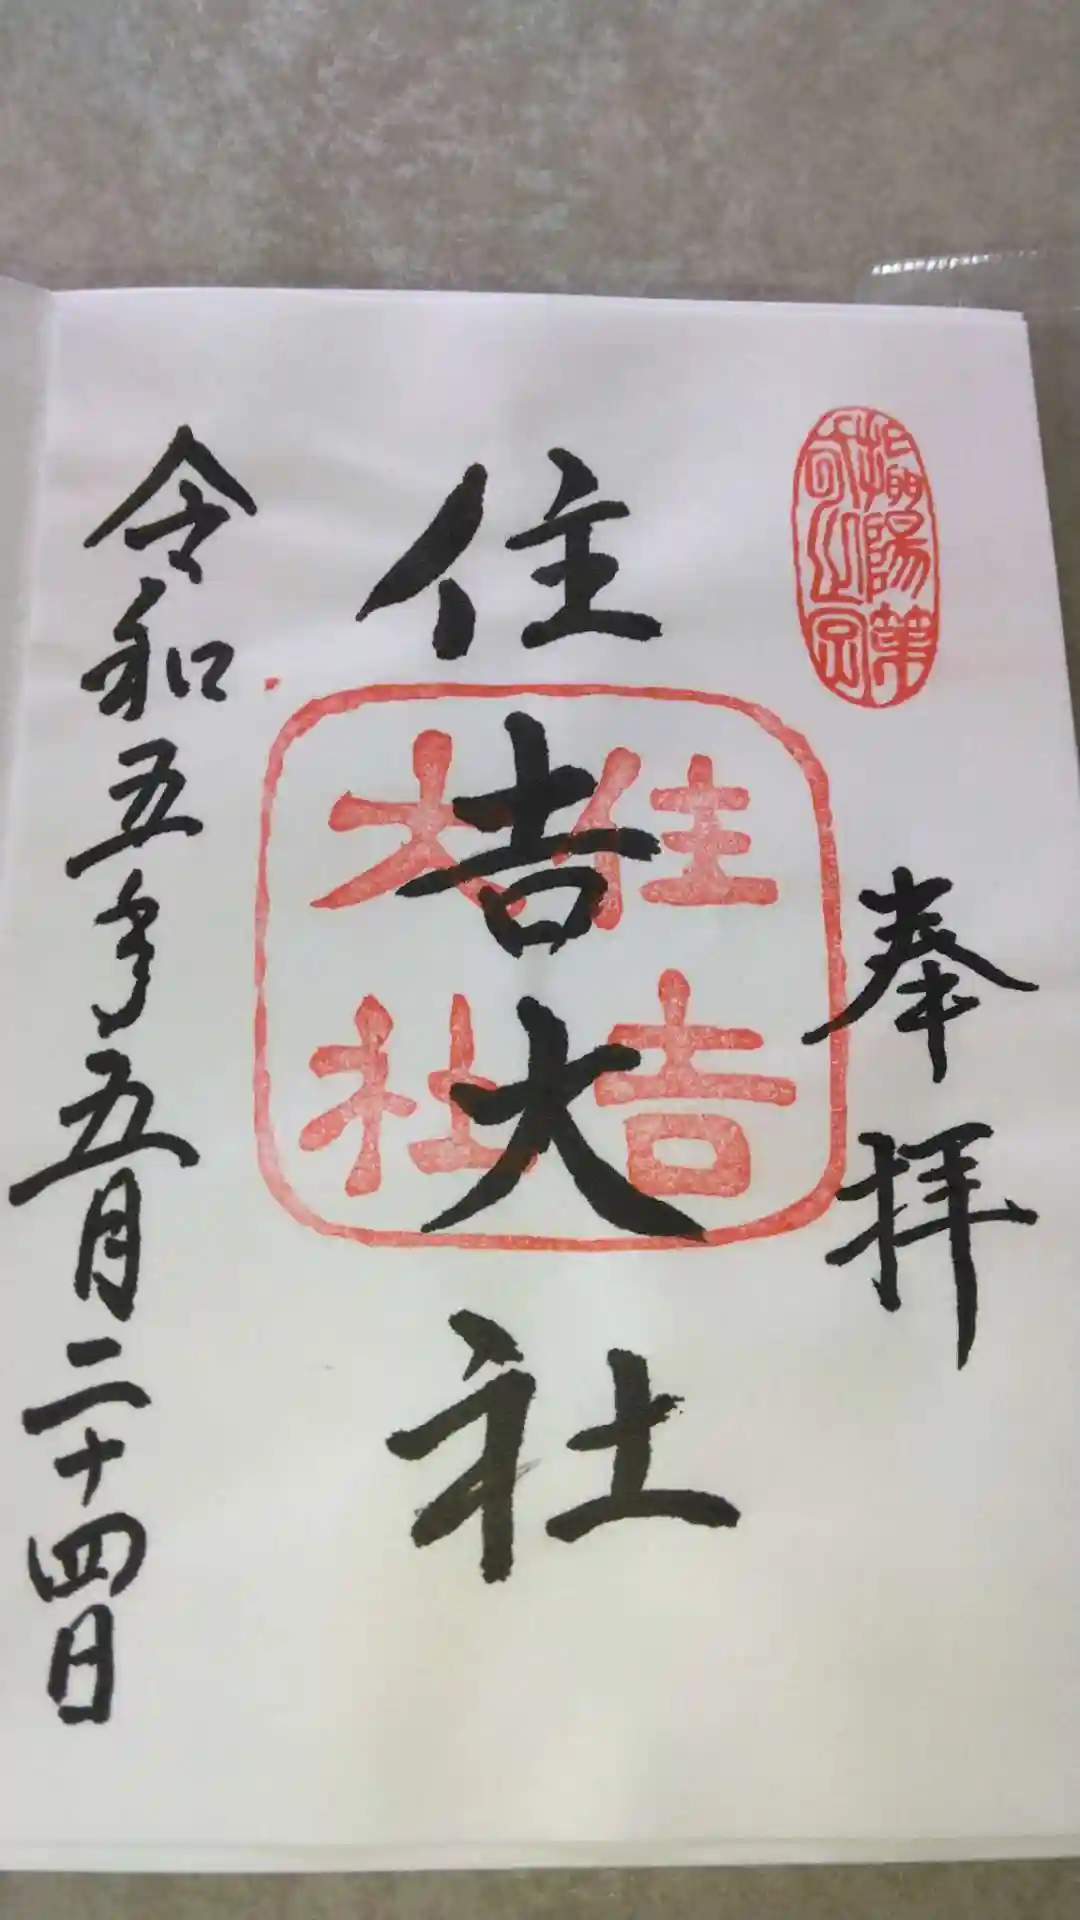 摂陽第
一之宮
奉拝
住吉大社
住吉
大社
令和五年五月二十四日